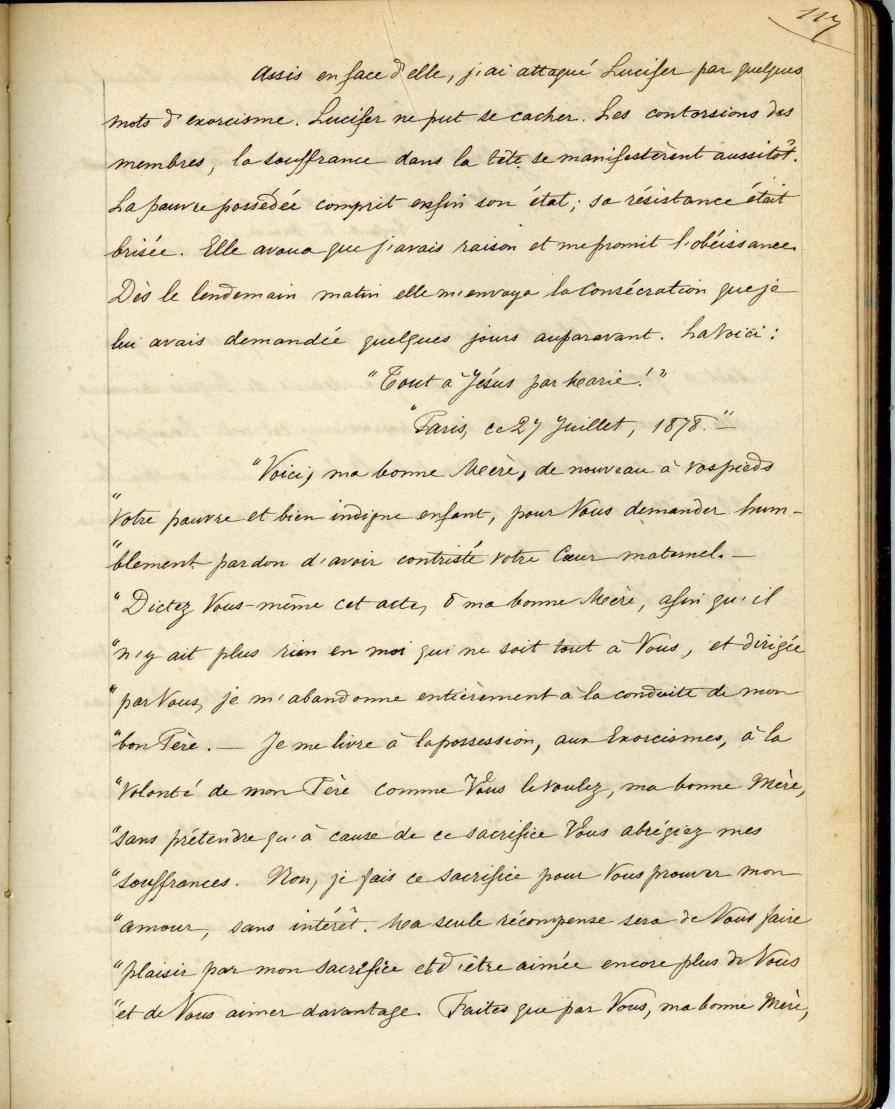 117
Assis en face d'elle, j'ai attaqué Lucifer par quelques
mots d'exorcisme. Lucifer ne put se cacher. Les contorsions des
membres, la souffrance dans la tête se manifestèrent aussitôt.
La pauvre possédée comprit enfin son état; sa résistance était
brisée. Elle avoua que j'avais raison et me promit l'obéissance.
Dès le lendemain matin elle m'envoya la Consécration que je
lui avais demandée quelques jours auparavant. La Voici:
"Tout à Jésus par Marie!"
"Paris, ce 27 Juillet, 1878."—
"Voici, ma bonne Mère, de nouveau à vos pieds
"Votre pauvre et bien indigne enfant, pour Vous demander hum-
"blement pardon d'avoir contristé votre Cœur maternel.—
"Dictez Vous-même cet acte, ô ma bonne Mère, afin qu'il
"n'y ait plus rien en moi qui ne soit tout à Vous, et dirigée
"par Vous, je m'abandonne entièrement à la conduite de mon
"bon Père.— Je me livre à la possession, aux Exorcismes, à la
"Volonté de mon Père comme Vous le voulez, ma bonne Mère,
"sans prétendre qu'à cause de ce sacrifice Vous abrégiez mes
"souffrances. Non, je fais ce sacrifice pour Vous prouver mon
"amour, sans intérêt. Ma seule récompense sera de Vous faire
"plaisir par mon sacrifice et d'être aimée encore plus de Vous
"et de Vous aimer davantage. Faites que par Vous, ma bonne Mère,